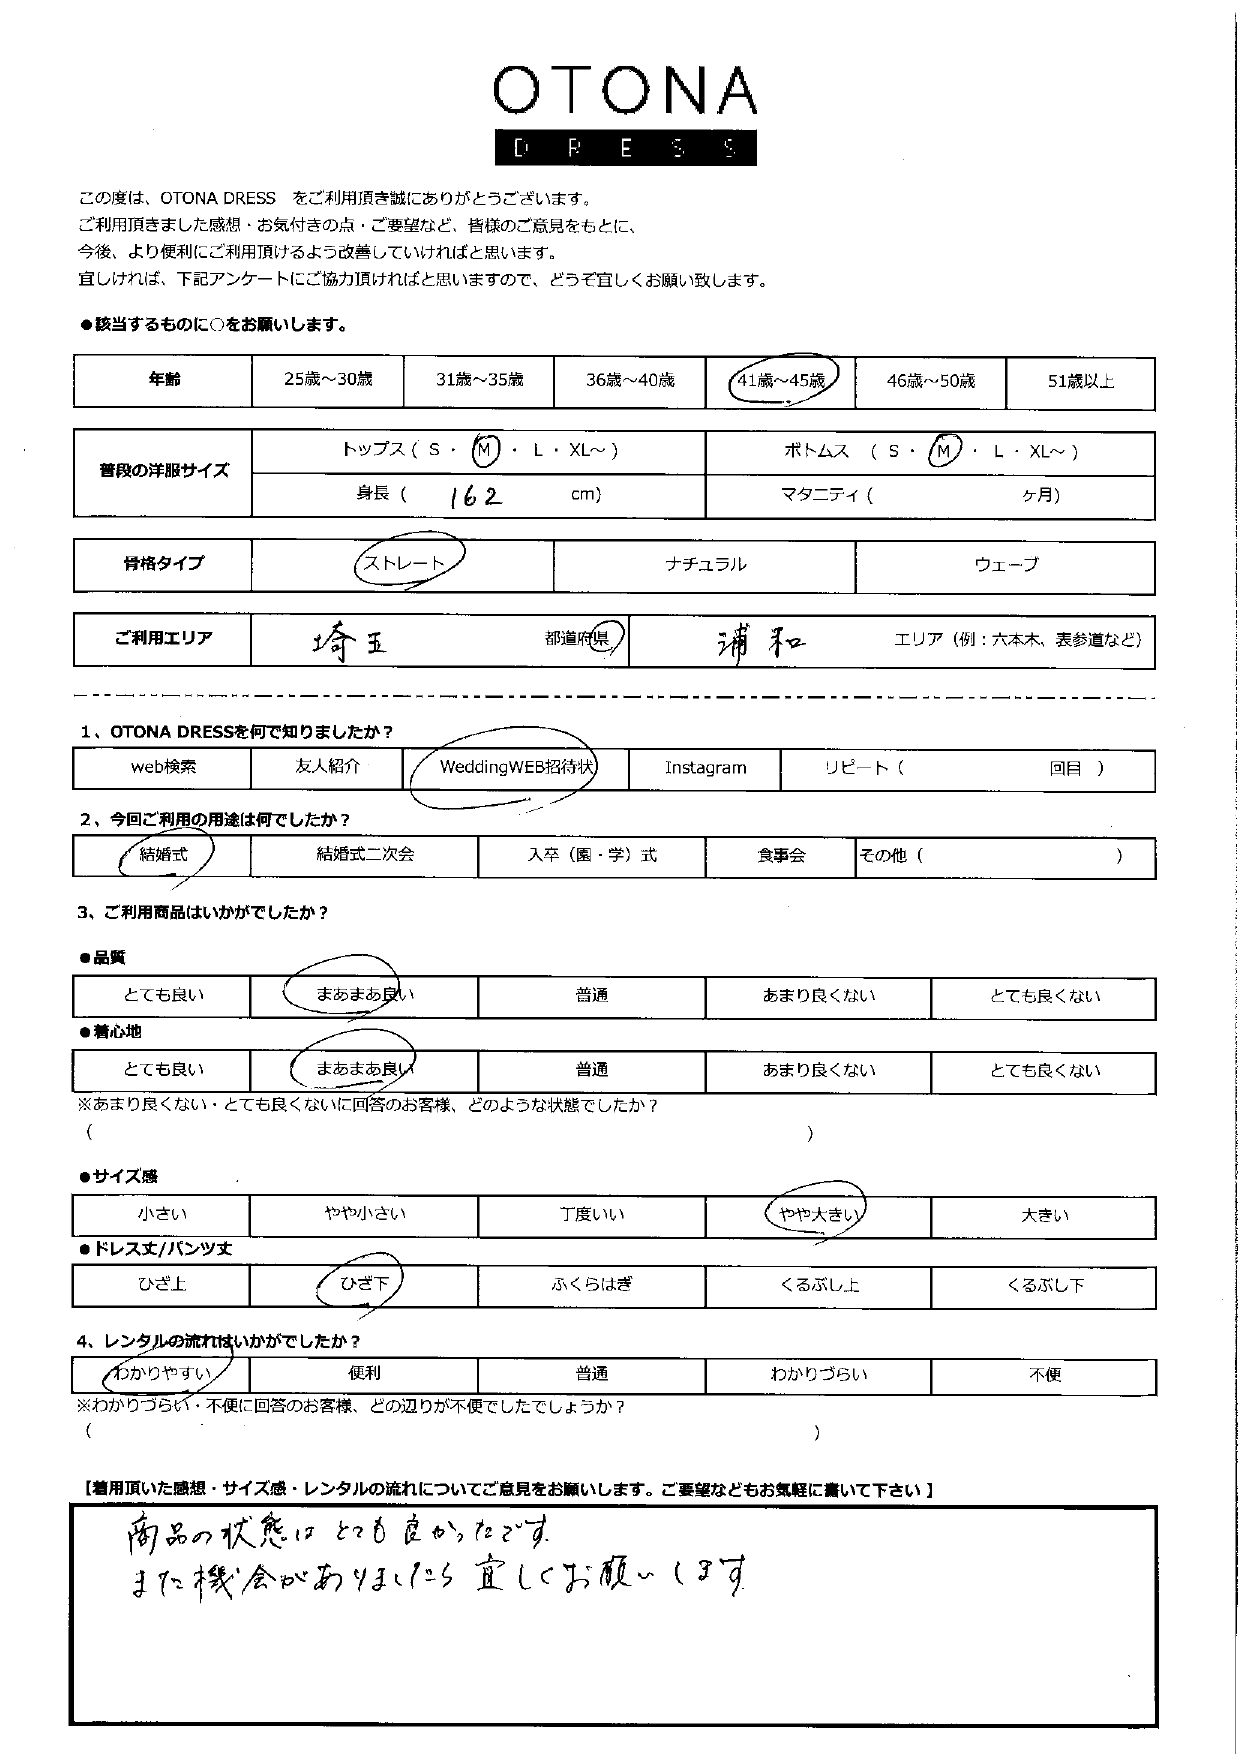 OTONA
DRESS
この度は、OTONA DRESS　をご利用頂き誠にありがとうございます。
ご利用頂きました感想・お気付きの点・ご要望など、皆様のご意見をもとに、
今後、より便利にご利用頂けるよう改善していければと思います。
宜しければ、下記アンケートにご協力頂ければと思いますので、どうぞ宜しくお願い致します。
●該当するものに○をお願いします。
年齢 25歳～30歳 31歳～35歳 36歳～40歳 41歳～45歳 46歳～50歳 51歳以上
普段の洋服サイズ トップス ( S ・ M ・ L ・ XL～ ) ボトムス ( S ・ M ・ L ・ XL～ )
身長 ( 162 cm) マタニティ ( ケ月)
骨格タイプ ストレート ナチュラル ウェーブ
ご利用エリア 埼玉 都道府県 浦和 エリア（例：六本木、表参道など）
1、OTONA DRESSを何で知りましたか？
web検索 友人紹介 WeddingWEB招待状 Instagram リピート ( 回目 )
2、今回ご利用の用途は何でしたか？
結婚式 結婚式二次会 入卒（園・学）式 食事会 その他 ( )
3、ご利用商品はいかがでしたか？
●品質
とても良い まあまあ良い 普通 あまり良くない とても良くない
●着心地
とても良い まあまあ良い 普通 あまり良くない とても良くない
※あまり良くない・とても良くないに回答のお客様、どのような状態でしたか？
( )
●サイズ感
小さい やや小さい 丁度いい やや大きい 大きい
●ドレス丈/パンツ丈
ひざ上 ひざ下 ふくらはぎ くるぶし上 くるぶし下
4、レンタルの流れはいかがでしたか？
わかりやすい 便利 普通 わかりづらい 不便
※わかりづらい・不便に回答のお客様、どの辺りが不便でしたでしょうか？
( )
【着用頂いた感想・サイズ感・レンタルの流れについてご意見をお願いします。ご要望などもお気軽に書いて下さい】
商品の状態はとても良かったです.
また機会がありましたら宜しくお願いします